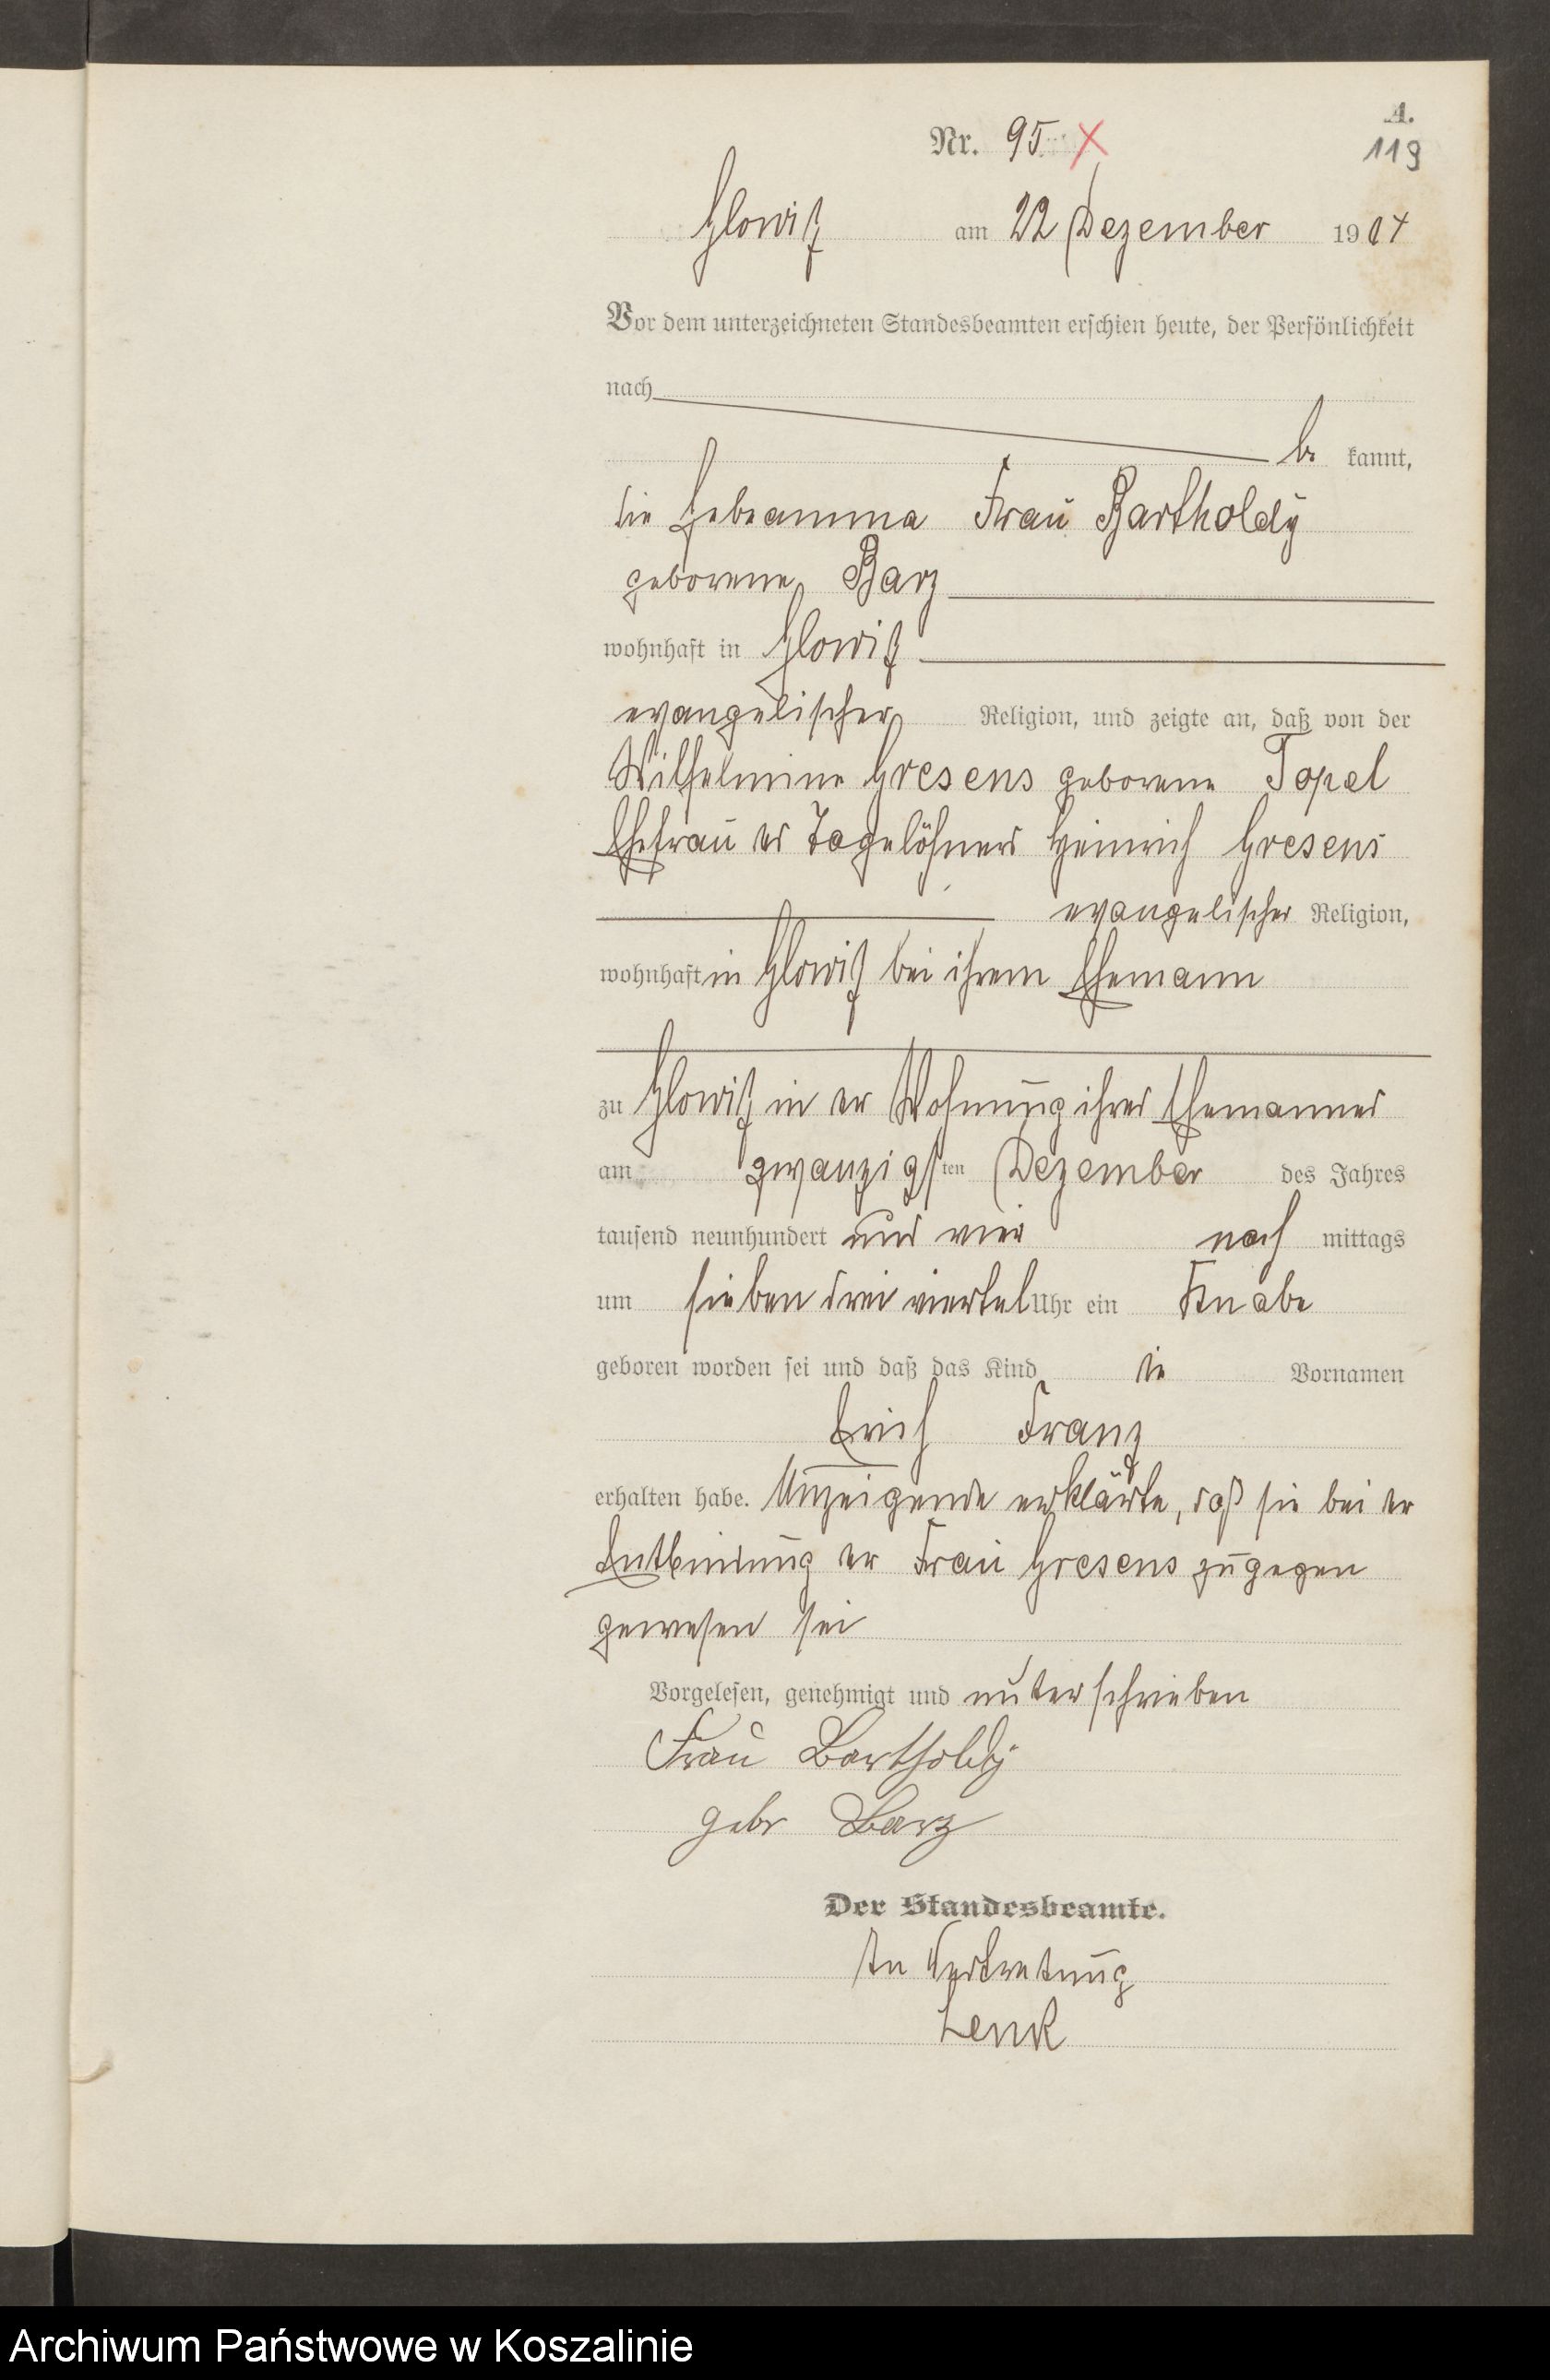 A.
Nr. 95 X
119
Glowitz am 22 Dezember 1904
Vor dem unterzeichneten Standesbeamten erschien heute, der Persönlichkeit
nach
be kannt,
die Hebeamme Frau Bartholdy
geborene Barz
wohnhaft in Glowitz
evangelischer Religion, und zeigte an, daß von der
Wilhelmine Gresens geborene Topel
Ehefrau des Tagelöhners Heinrich Gresens
evangelischer Religion,
wohnhaft in Glowitz bei ihrem Ehemann
zu Glowitz in der Wohnung ihres Ehemannes
am zwanzigsten Dezember des Jahres
tausend neunhundert und vier nach mittags
um sieben drei viertel Uhr ein Knabe
geboren worden sei und daß das Kind die Vornamen
Erich Franz
erhalten habe. Anzeigende erklärte, daß sie bei der
Entbindung der Frau Gresens zugegen
gewesen sei
Vorgelesen, genehmigt und unterschrieben
Frau Bartholdy
gebr Barz
Der Standesbeamte.
In Vertretung
Lenk
Archiwum Państwowe w Koszalinie